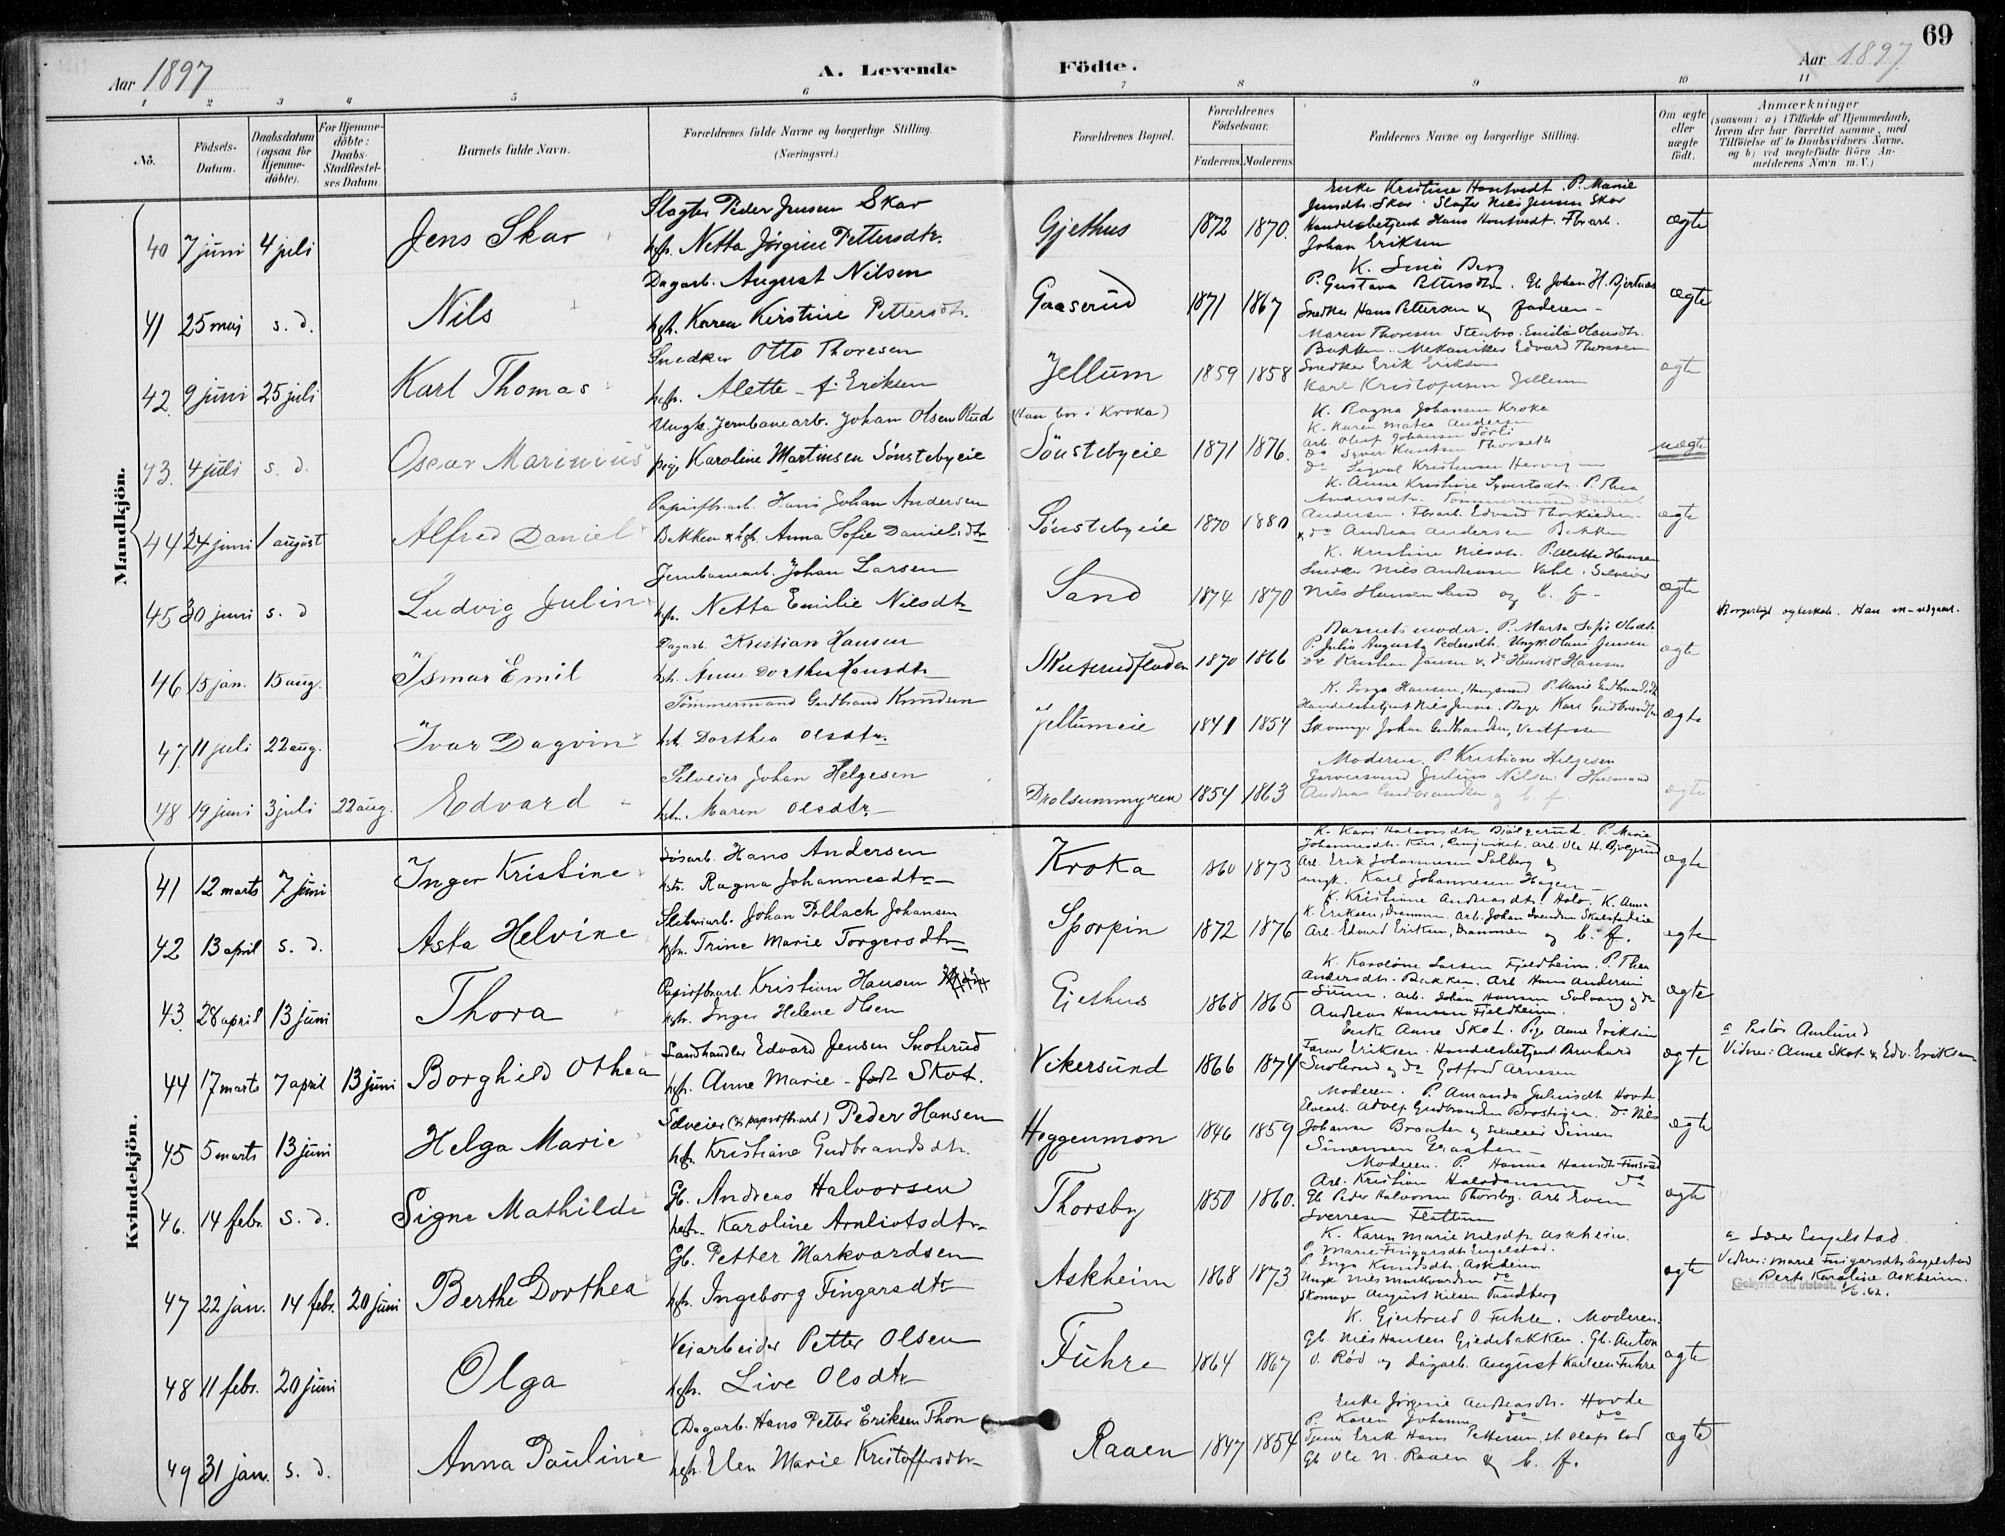 69
Aar 1897
A. Levende Födte.
Aar 1897
1 2 3 4 5 6 7 8 9 10 11
No.
Födsels-Datum.
Daabsdatum (ogsaa for Hjemme-döbte).
For Hjemme-döbte: Daabs-Stadfæstel-ses Datum
Barnets fulde Navn.
Forældrenes fulde Navne og borgerlige Stilling.
(Næringsvei.)
Forældrenes Bopæl.
Forældrenes Födselsaar.
Faderens. Moderens.
Faddernes Navne og borgerlige Stilling.
Om ægte eller uægte födt.
Anmærkninger
(saasom: a) i Tilfælde af Hjemmedaab, hvem der har forrettet samme, med Tilföielse af to Daabsvidners Navne, og b) ved uægtefödte Börn An-melderens Navn m. V.)
Mandkjön.
Slagter Peder Jensen Skar
Enke Kristine Hontvedt. P. Marie
Jensdtr. Skar. Slagter Nils Jensen Skar
40 7 juni 4 juli Jens Skar hstr. Netta Jörgine Pettersdtr. Gjethus 1872 1870. Handelsbetjent Hans Hontvedt. Fbrarb. ægte
Johan Eriksen
Dagarb. August Nilsen
P. Gustava Pettersdtr. Gb. Johan H. Bjertnæs
41 25 mai s. d. Nils hstr. Karen Kirstine Pettersdtr. Gaaserud 1871 1867 Snedker Hans Pettersen og faderen ægte
Snedker Otto Thoresen
Maren Thoresen Stenbro. Emilie Olausdtr.
Bakken. Mekaniker Edvard Thoresen
42. 9 juni 25 juli Karl Thomas hstr. Alette f. Eriksen Jellum 1859 1858 Snedker Erik Eriksen ægte
Karl Kristofersen Jellum
Ungk. Jernbanearb. Johan Olsen Rud (Han bor i Kroka)
K. Ragna Johansen Kroka
K. Karen Mathea Andersen
43. 4 juli s. d. Oscar Marinius pige Karoline Martinsen Sönstebyeie Sönstebyeie 1871 1876. Arb. Oluf Johansen uægte
Papirfbrarb. Hans Johan Andersen
K. Anne Kristine Syvertsdtr. P. Thea
Andersdtr. Tömmermand Daniel
44 24 juni 1 august Alfred Daniel Bakken & hstr. Anna Sofie Danielsdtr. Sönstebyeie 1870 1880 Andersen. Fbrarb. Edvard ægte
& do Andreas Andersen Bakken
Jernbanearb. Johan Larsen
K. Kristine Nilsdtr. P. Alette Hansen
Snedker Nils Andreasen
45 30 juni s. d. Ludvig Julin hstr. Netta Emilie Nilsdtr. Sand 1874 1870 Nils Hansen Sand og b. f. ægte Borgerligt ægteskab. Han
Dagarb. Kristian Hansen
Barnets moder. P. Marta Sofie Olsdtr.
P. Julie Augusta Pedersdtr. Ungk. Olaus Jensen
46 15 jan. 15 aug. Ismar Emil hstr. Anne Dorthea Hansdtr. Skuterudfladen 1870 1866 do Kristian Jansen & do Henrik Hansen ægte
Tömmermand Gudbrand Knudsen
K. Inga Hansen, P. Marie Gudbrandsdtr.
Handelsbetjent Nils Jensen. Karl Gudbrandsen
47. 11 juli 22 aug. Ivar Dagvin hstr. Dorthea Olsdtr. Jellumeie 1841 1854 Skomager Johan Gudbrandsen, Vestfossen ægte
Selveier Johan Helgesen
Moderen. P. Kristiane Helgesen
Garversvend Julius Nilsen
48 19 juni 3 juli 22 aug. Edvard hstr. Maren Olsdtr. Drolsummyren 1854 1863 Andreas Gudbrandsen og b. f. ægte
Kvindekjön.
Hans Andersen
K. Kari Halvorsdtr. Bjölgerud. P. Marie
Johannesdtr. Arb. Ole H. Bjölgerud
41 12 marts 7 juni Inger Kristine hstr. Ragna Johannesdtr. Kroka 1860 1873 Arb. Erik Johannesen Solberg og ægte
ungk. Karl Johannesen Hagen
Sliberiarb. Johan Pollack Johansen
K. Kristiane Andreasdtr. K. Anna
K. Eriksen, Drammen. Arb. Johan Svendsen
42 13 april s. d. Asta Helvine hstr. Trine Marie Torgersdtr. Sporpin 1872 1876 Arb. Edvard Eriksen, Drammen og b. f. ægte
Papirfbrarb. Kristian Hansen
K. Karoline Larsen Fjeldheim. P. Thea
Andersdtr. Bakken. Arb. Hans Andersen
43. 28 april 13 juni Thora hstr. Inger Helene Olsen Gjethus 1868 1865 Arb. Johan Hansen Solvang & do ægte
Andreas Hansen Fjeldheim.
Landhandler Edvard Jensen Snolerud
Enke Anne Skot. Pige Anne Eriksen
a Pastor Amlund
44 17 marts 7 april 13 juni Borghild Othea hstr. Anne Marie født Skot. Vikersund 1866 1874 Eriksen. Handelsbetjent Bernhard ægte Vidner: Anne Skot & Edv. Eriksen
Snolerud og do Gotfred Arnesen
Selveier (& papirfbrarb) Peder Hansen
Moderen. P. Amanda Juliusdtr. Hovde
Elvearb. Adolf Gudbrandsen Do Nils
45 5 marts 13 juni Helga Marie hstr. Kristiane Gudbrandsdtr. Heggenmon 1846 1859 Johansen Braaten og selveier Simen ægte
Simensen Graaten
Gb. Andreas Halvorsen
Moderen. P. Hanna Hansdtr. Finsrud
Arb. Kristian Halvorsen do
46. 14 febr. s. d. Signe Mathilde hstr. Karoline Arnliotsdtr. Thorsby 1850 1860. Gb. Peder Halvorsen Thorsby. Arb. Even ægte
Sverresen Flattum
Gb. Petter Markvardsen
K. Karen Marie Nilsdtr. Askheim.
P. Marie Fingarsdtr. Engelstad.
P. Inga Knudsdtr. Askheim
a Lærer Engelstad
Vidner: Marie Fingarsdtr. Engelstad
47 22 jan. 14 febr. 20 juni Berthe Dorthea hstr. Ingeborg Fingarsdtr. Askheim 1868 1873 Ungk. Nils Markvardsen do ægte Berte Karoline Askheim.
Skomager August Nilsen Sundberg
1/6.62.
Veiarbeider Petter Olsen
K. Gjertrud O. Fuhre. Moderen.
Gb. Nils Hansen Gjedebakken. Gb. Anton
48 11 febr. 20 juni Olga hstr. Live Olsdtr. Fuhre 1864 1867 O. Röd og dagarb. August Karlsen Fuhre ægte
Dagarb. Hans Petter Eriksen Thon
Enke Jörgine Andreasdtr. Hovde
P. Karen Johanne do do
49 31 jan. s. d. Anna Pauline hstr. Elen Marie Kristoffersdtr. Raaen 1847 1854 Tjener Erik Hans Pettersen, St. Olafs bad ægte
Gb. Ole N. Raaen & b. f.